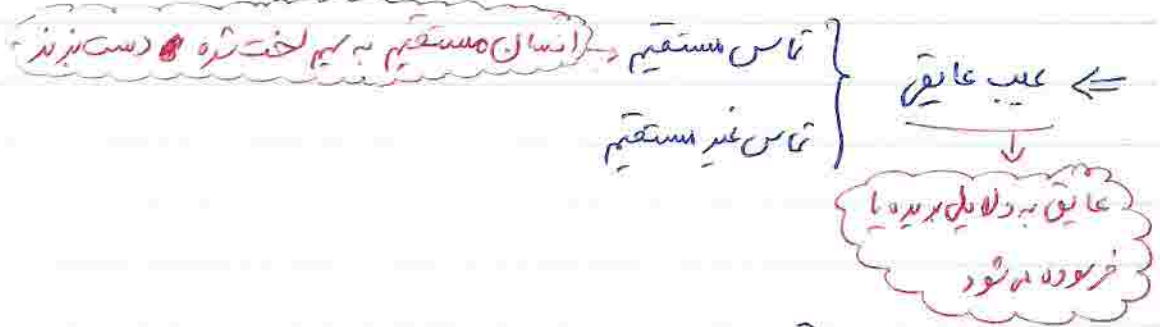 ⇐ عیب عایقی
تماس مستقیم → انسان مستقیم به سیم لخت شده دست بزند
تماس غیر مستقیم
عایق به دلایلی بریده یا
فرسوده می شود